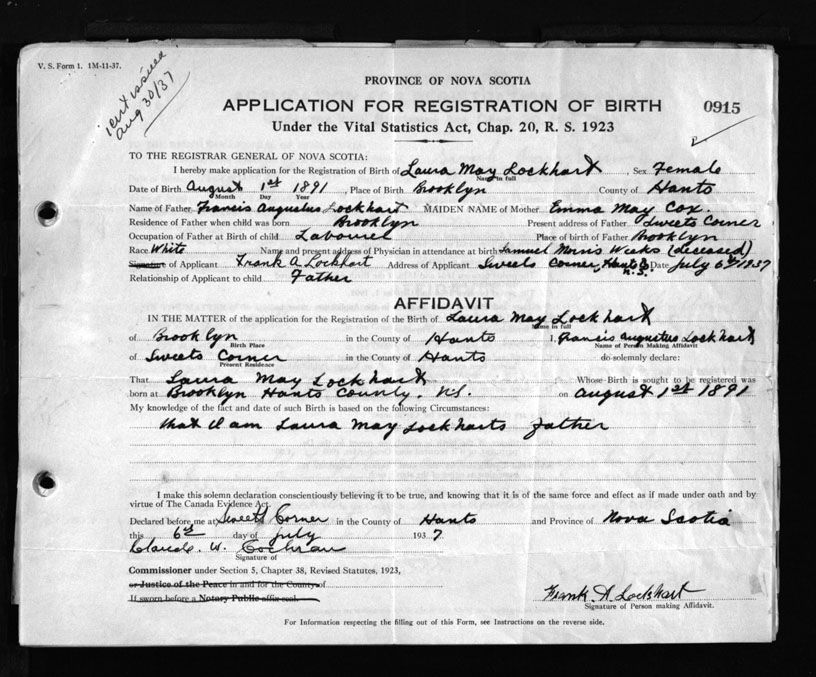 V. S. Form 1. 1M-11-37.
Cert issued
Aug 30/37
PROVINCE OF NOVA SCOTIA
APPLICATION FOR REGISTRATION OF BIRTH 0915
Under the Vital Statistics Act, Chap. 20, R. S. 1923
TO THE REGISTRAR GENERAL OF NOVA SCOTIA:
I hereby make application for the Registration of Birth of Laura May Lockhart, Sex Female
Name in full
Date of Birth August 1st 1891, Place of Birth Brooklyn County of Hants
Month Day Year
Name of Father Francis Augustus Lockhart MAIDEN NAME of Mother Emma May Cox.
Residence of Father when child was born Brooklyn Present address of Father Sweets Corner
Occupation of Father at Birth of child Labourer Place of birth of Father Brooklyn
Race White Name and present address of Physician in attendance at birth Samuel Morris Weeks (deceased)
Signature of Applicant Frank A Lockhart Address of Applicant Sweets Corner, Hants Co N.S. Date July 6th 1937
Relationship of Applicant to child Father
AFFIDAVIT
IN THE MATTER of the application for the Registration of the Birth of Laura May Lockhart
Name in full
of Brooklyn in the County of Hants I, Francis Augustus Lockhart
Birth Place Name of Person Making Affidavit
of Sweets Corner in the County of Hants do solemnly declare:
Present Residence
That Laura May Lockhart Whose Birth is sought to be registered was
born at Brooklyn Hants County, N.S. on August 1st 1891
My knowledge of the fact and date of such Birth is based on the following Circumstances:
that I am Laura May Lockharts father
I make this solemn declaration conscientiously believing it to be true, and knowing that it is of the same force and effect as if made under oath and by
virtue of The Canada Evidence Act.
Declared before me at Sweets Corner in the County of Hants and Province of Nova Scotia
this 6th day of July 1937.
Claude. W. Cochran
Signature of
Commissioner under Section 5, Chapter 38, Revised Statutes, 1923,
or Justice of the Peace in and for the County of
If sworn before a Notary Public affix seal.
Frank A Lockhart
Signature of Person making Affidavit.
For Information respecting the filling out of this Form, see Instructions on the reverse side.